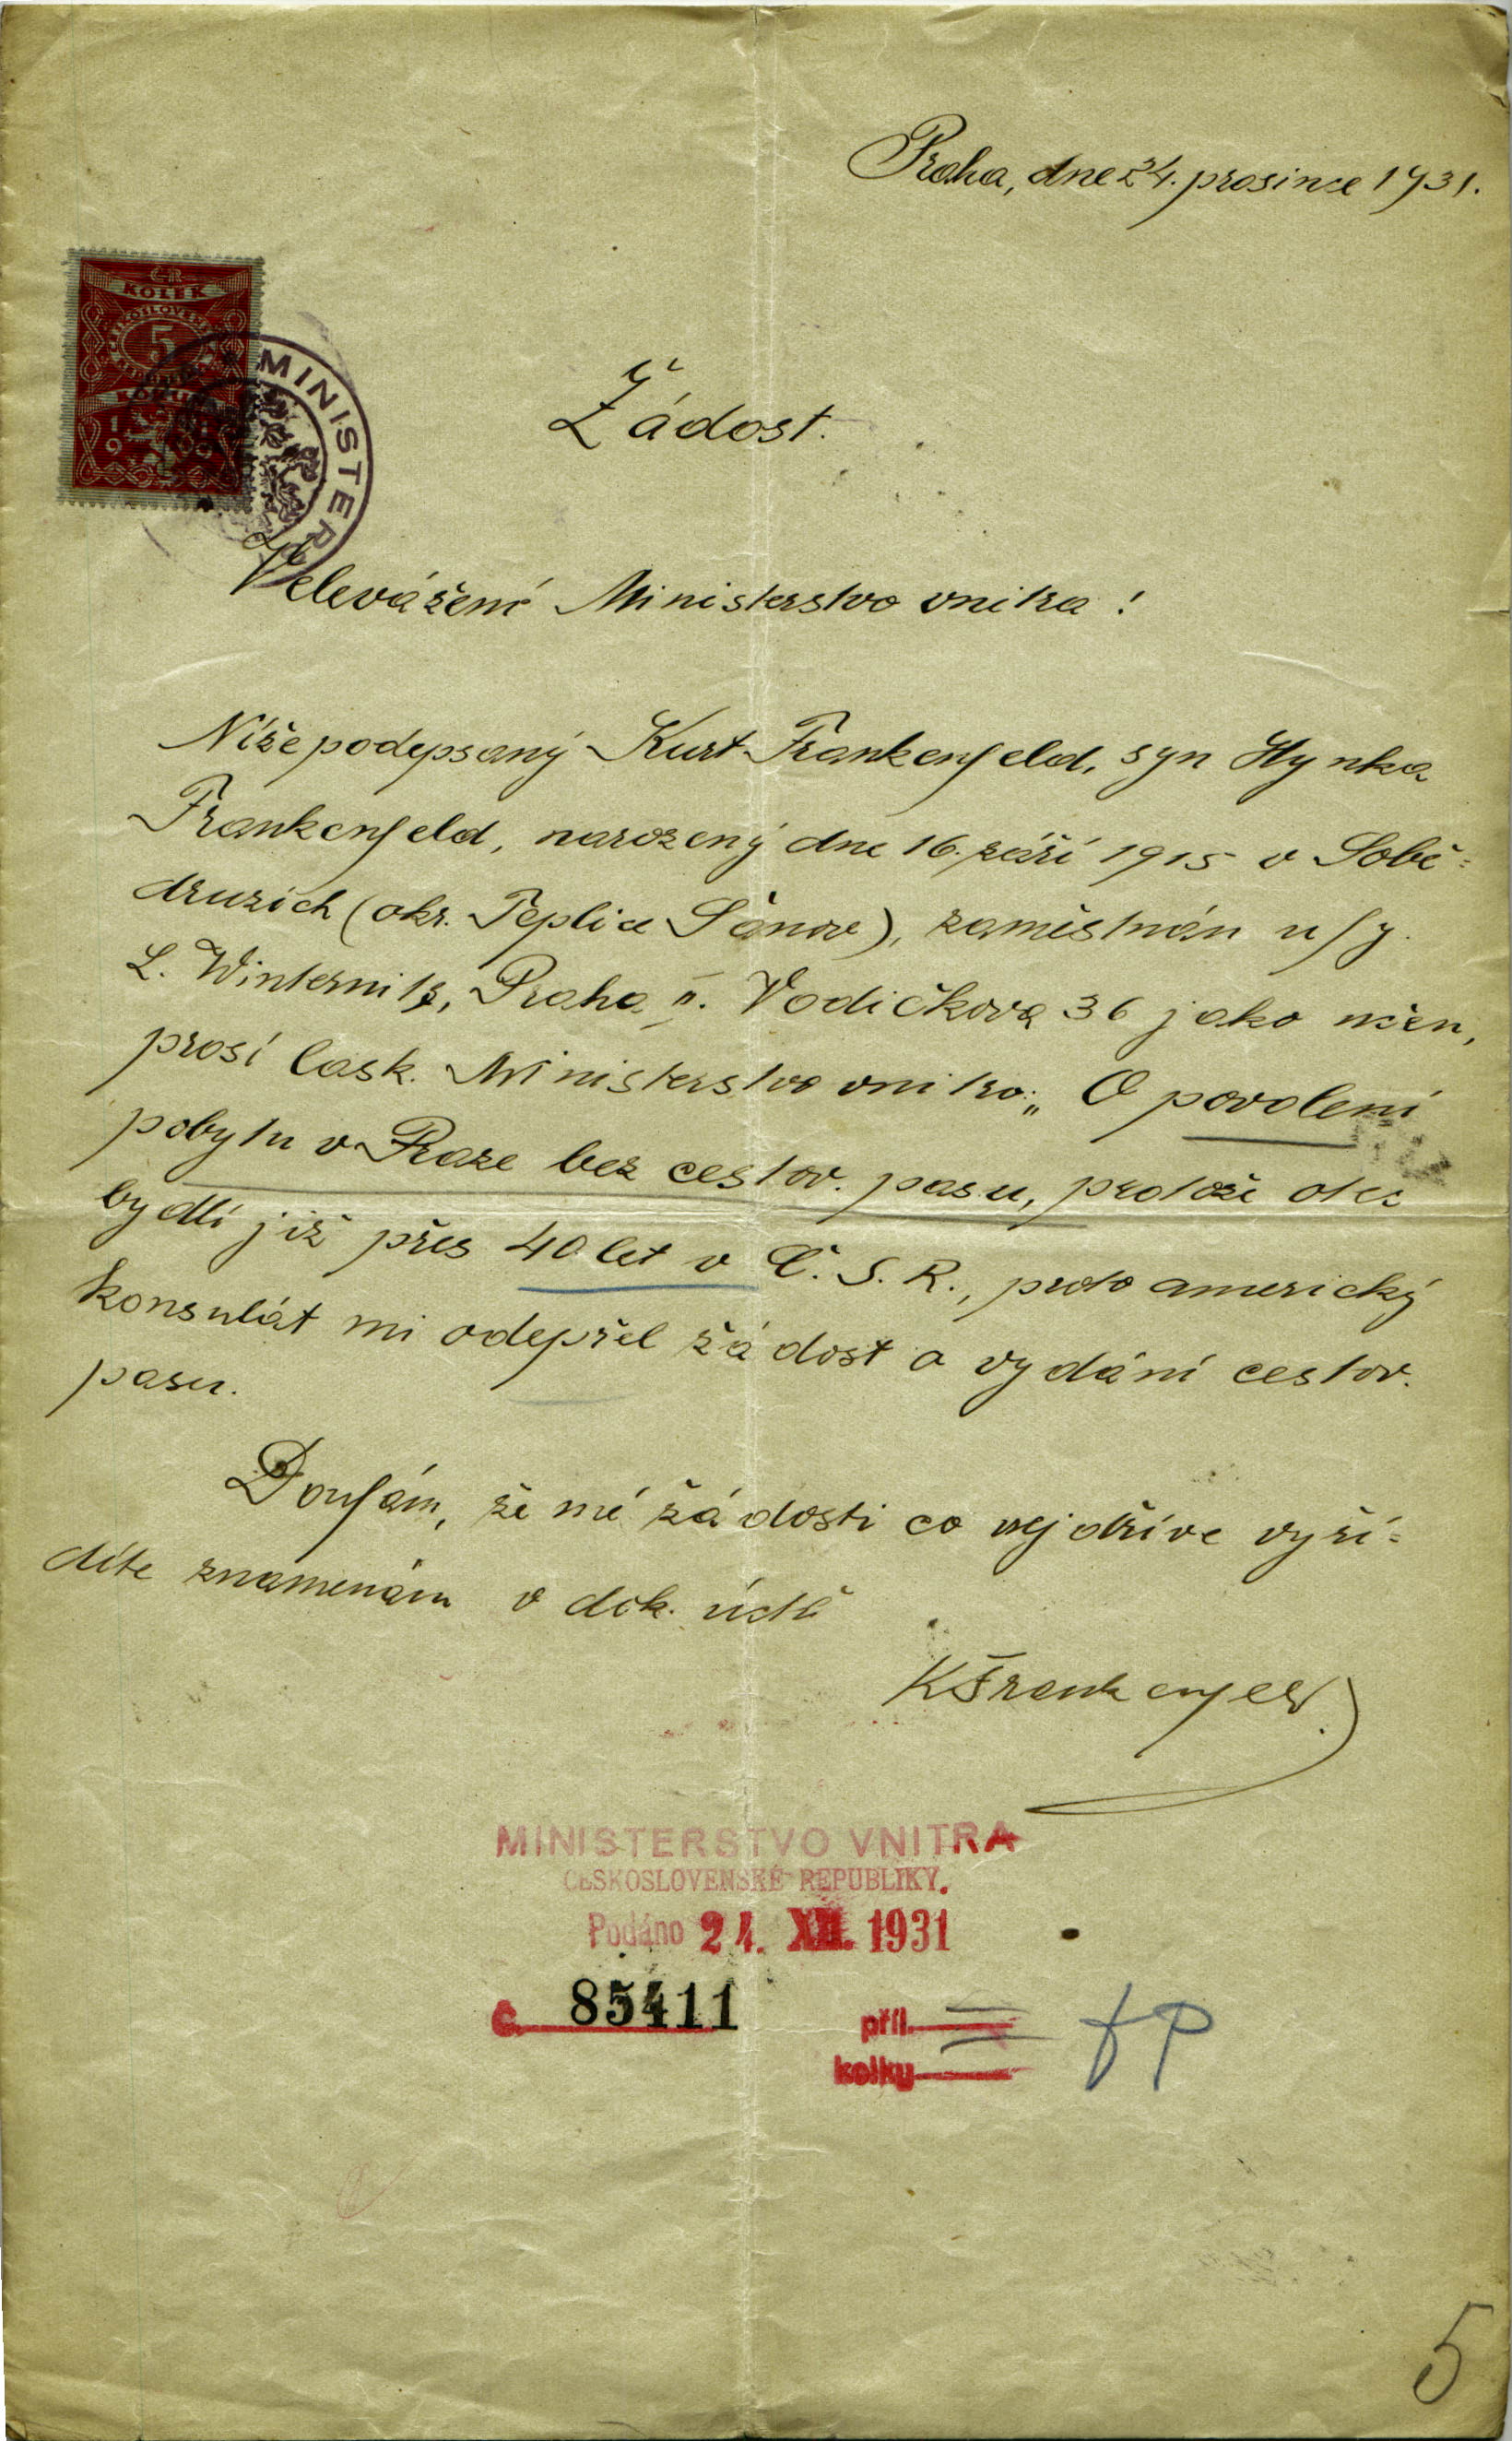 Praha, dne 24. prosince 1931.
KOLEK
5
MINISTER
Žádost.
Velevážené Ministerstvo vnitra!
Níže podepsaný Kurt Frankenfeld, syn Hynka
Frankenfeld, narozený dne 16. září 1915 v Sobě=
druzích (okr. Teplice Šanov), zaměstnán u fy.
L. Winternitz, Praha II. Vodičkova 36 jako učen,
prosí lask. Ministerstvo vnitra: „O povolení
pobytu v Praze bez cestov. pasu, protože otec
bydlí již přes 40 let v Č. S. R., proto americký
konsulát mi odepřel žádost o vydání cestov.
pasu.
Doufám, že mé žádosti co nejdříve vyří=
díte znamenám v dok. úctě
KFrankenfeld
MINISTERSTVO VNITRA
ČESKOSLOVENSKÉ REPUBLIKY.
Podáno 24. XII. 1931
č. 85411
příl.
kolky
5